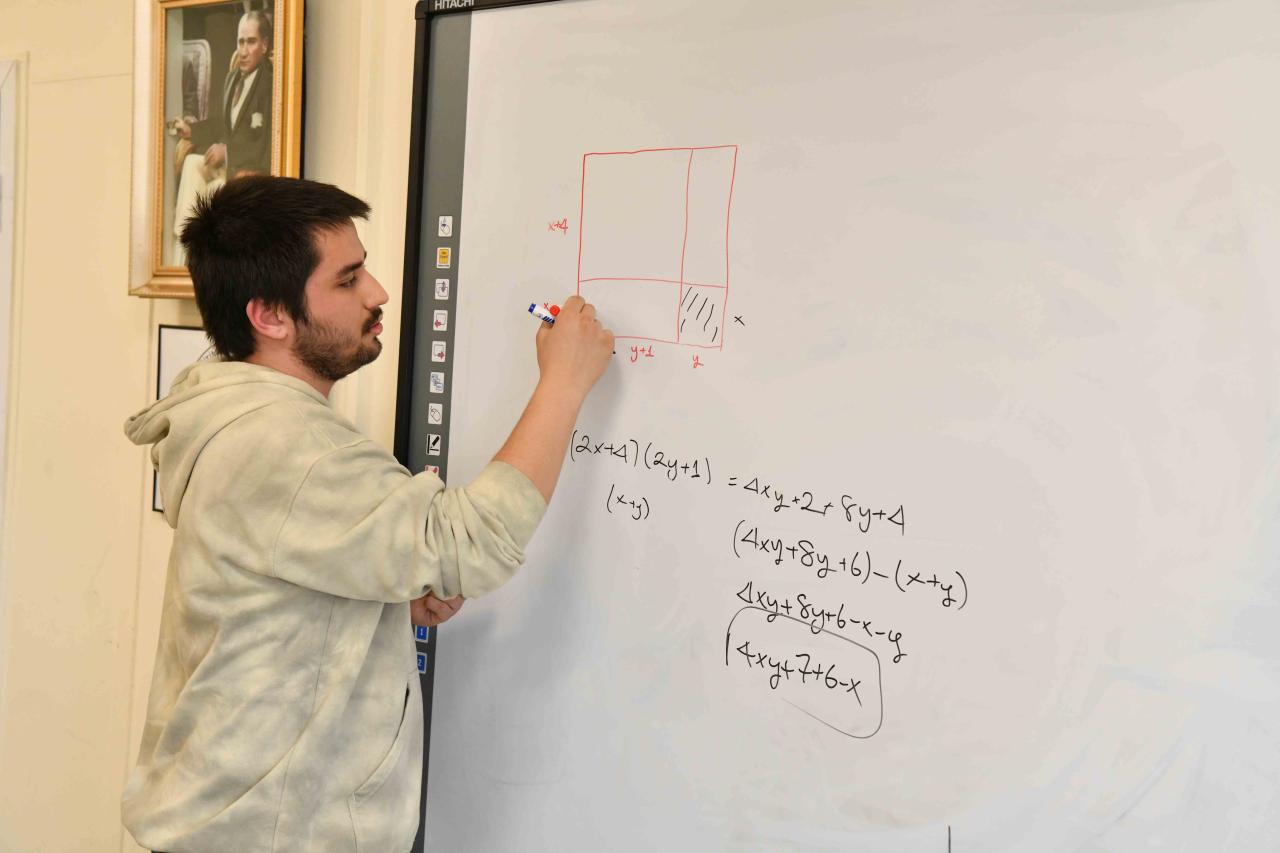 HITACHI
x+4
x
x
y+1
y
(2x+4)(2y+1) = 4xy+2+8y+4
(x+y)
(4xy+8y+6)-(x+y)
4xy+8y+6-x-y
4xy+7+6-x